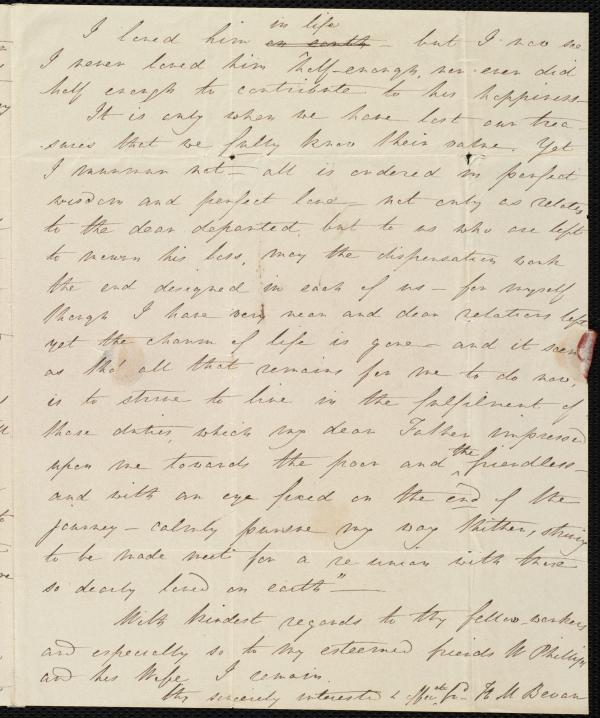 in life
I loved him on earth – but I now see
I never loved him half enough, nor even did
half enough to contribute to his happiness –
It is only when we have lost our trea-
sures that we fully know their value. Yet
I murmur not – all is ordered in perfect
wisdom and perfect love – not only as relates
to the dear departed, but to us who are left
to mourn his loss, may the dispensation work
the end designed in each of us – for myself
though I have very near and dear relations left
yet the charm of life is gone – and it seems
as tho' all that remains for me to do now,
is to strive to live in the fulfilment of
those duties, which my dear Father impressed
upon me towards the poor and the friendless –
and with an eye fixed on the end of the
journey – calmly pursue my way thither, striving
to be made meet for a re union with those
so dearly loved on earth" –
With kindest regards to thy fellow-workers
and especially so to my esteemed friends W Phillips
and his Wife I remain
thy sincerely interested & H M Bevan